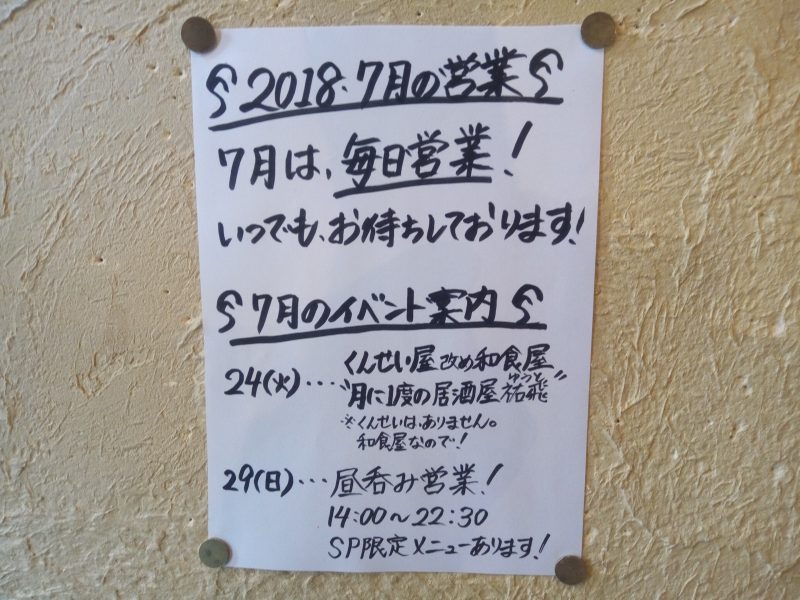 2018.7月の営業
7月は、毎日営業!
いつでも、お待ちしております!
7月のイベント案内
24(火)....くんせい屋改め和食屋
"月に1度の居酒屋祐飛"
ゆうと
※くんせいは、ありません。
和食屋なので!
29(日)...昼呑み営業!
14:00〜22:30
SP限定メニューあります!